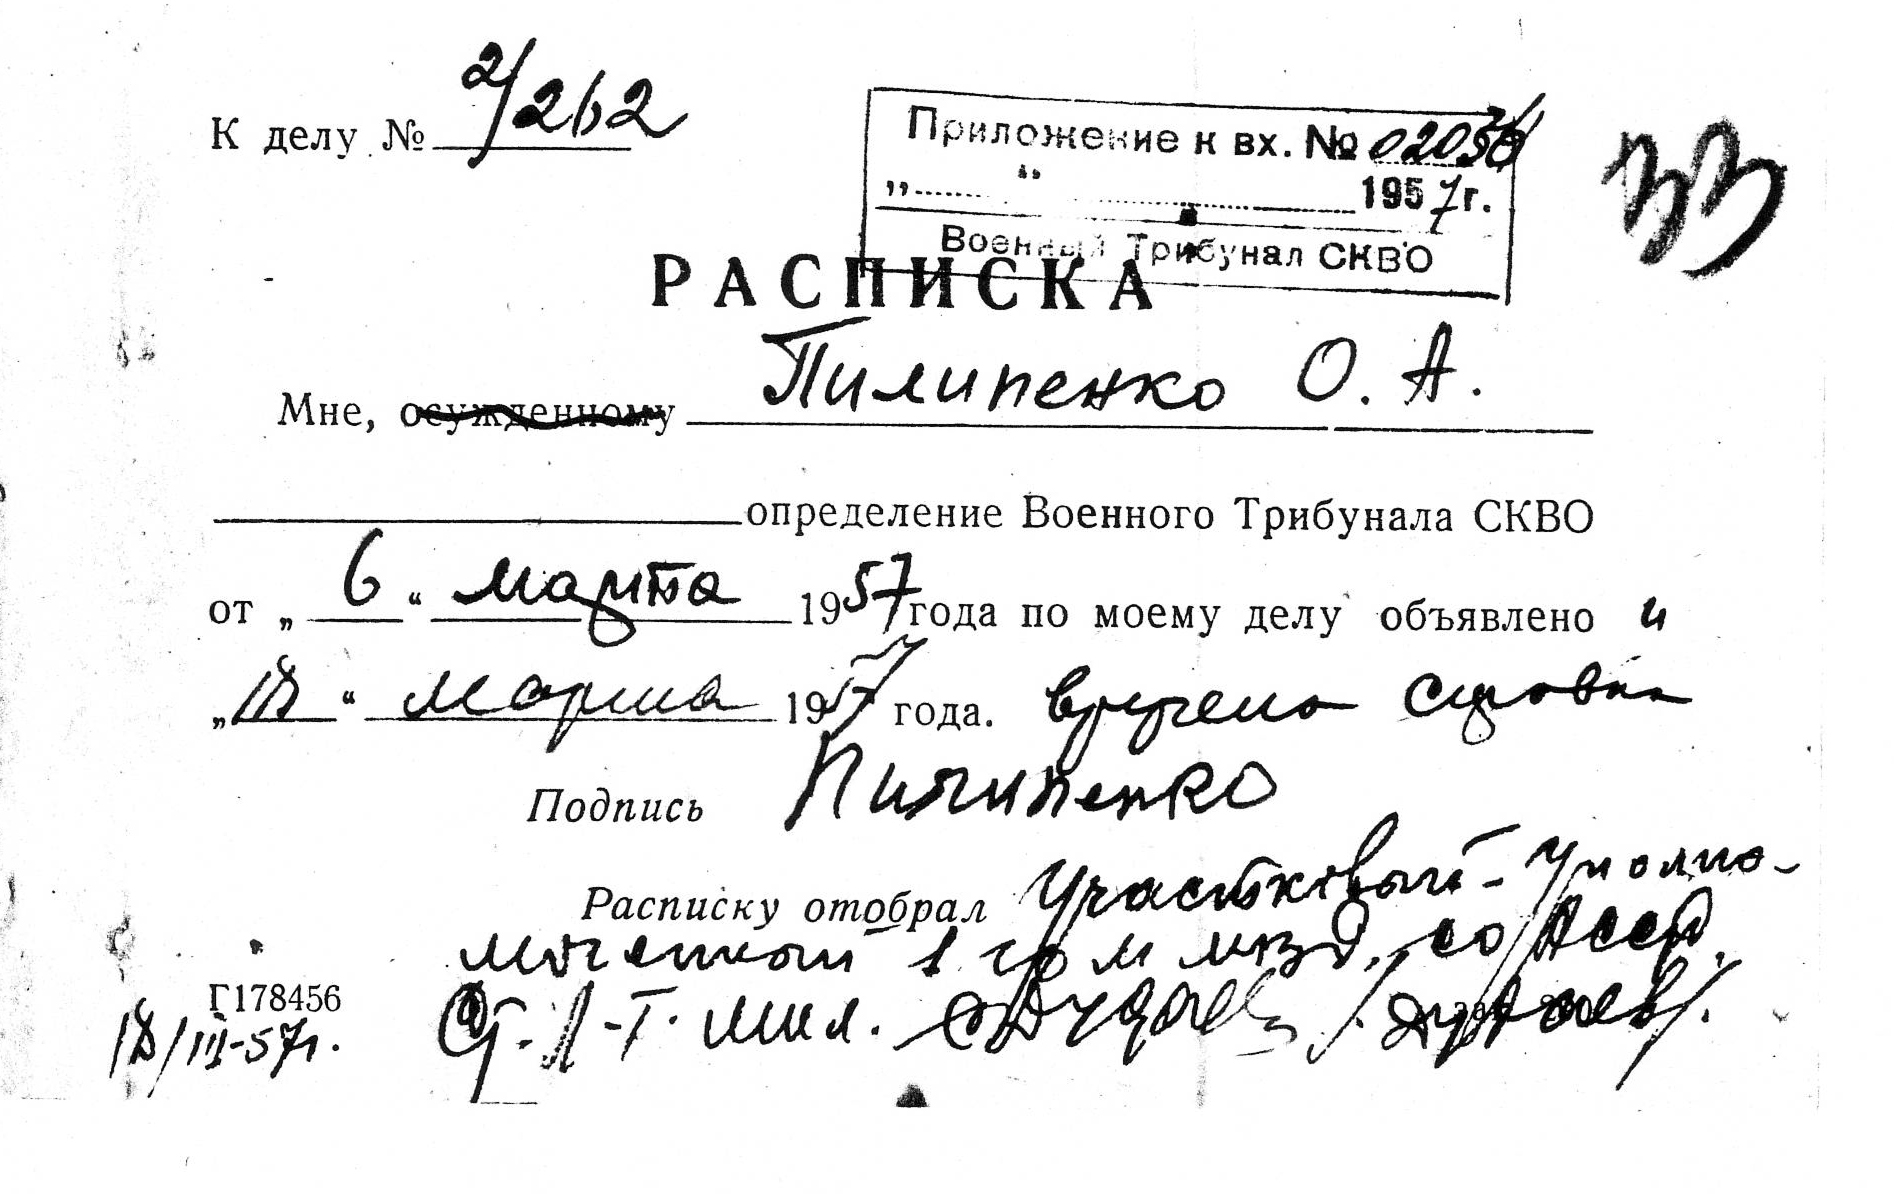 К делу № 2/262
Приложение к вх. № 02036
„ “ 1957г.
Военный Трибунал СКВО
33
РАСПИСКА
Мне, осужденному Пилипенко О. А.
определение Военного Трибунала СКВО
от „ 6 “ марта 1957 года по моему делу объявлено и
„18“ марта 1957 года. вручена справка
Подпись Пилипенко
Расписку отобрал Участковый - Уполно-
моченный 1 г/о м МВД. СО АССР.
Г178456
Ст. Л-Т. мил.
18/III-57г.